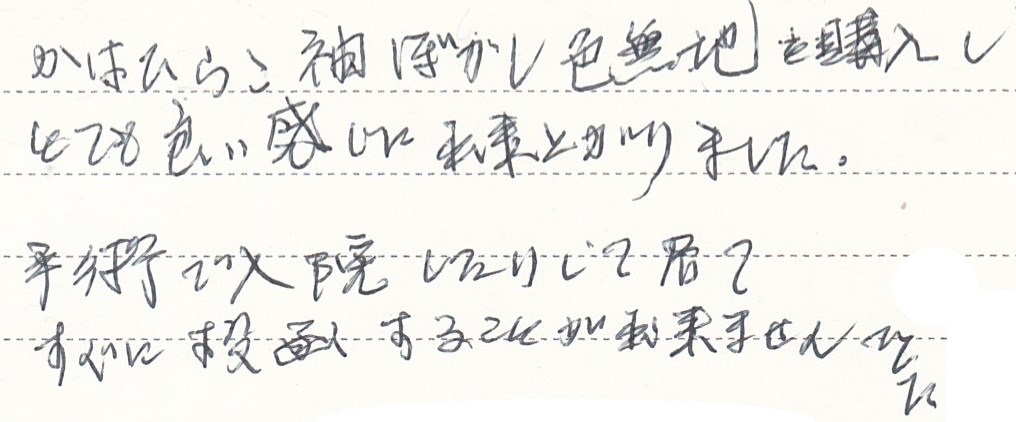 かはひらこ 袖ぼかし色無地」を購入し
とても良い感じに出来上がりました。
手術で入院したりして居て
すぐに投函することが出来ませんで
した